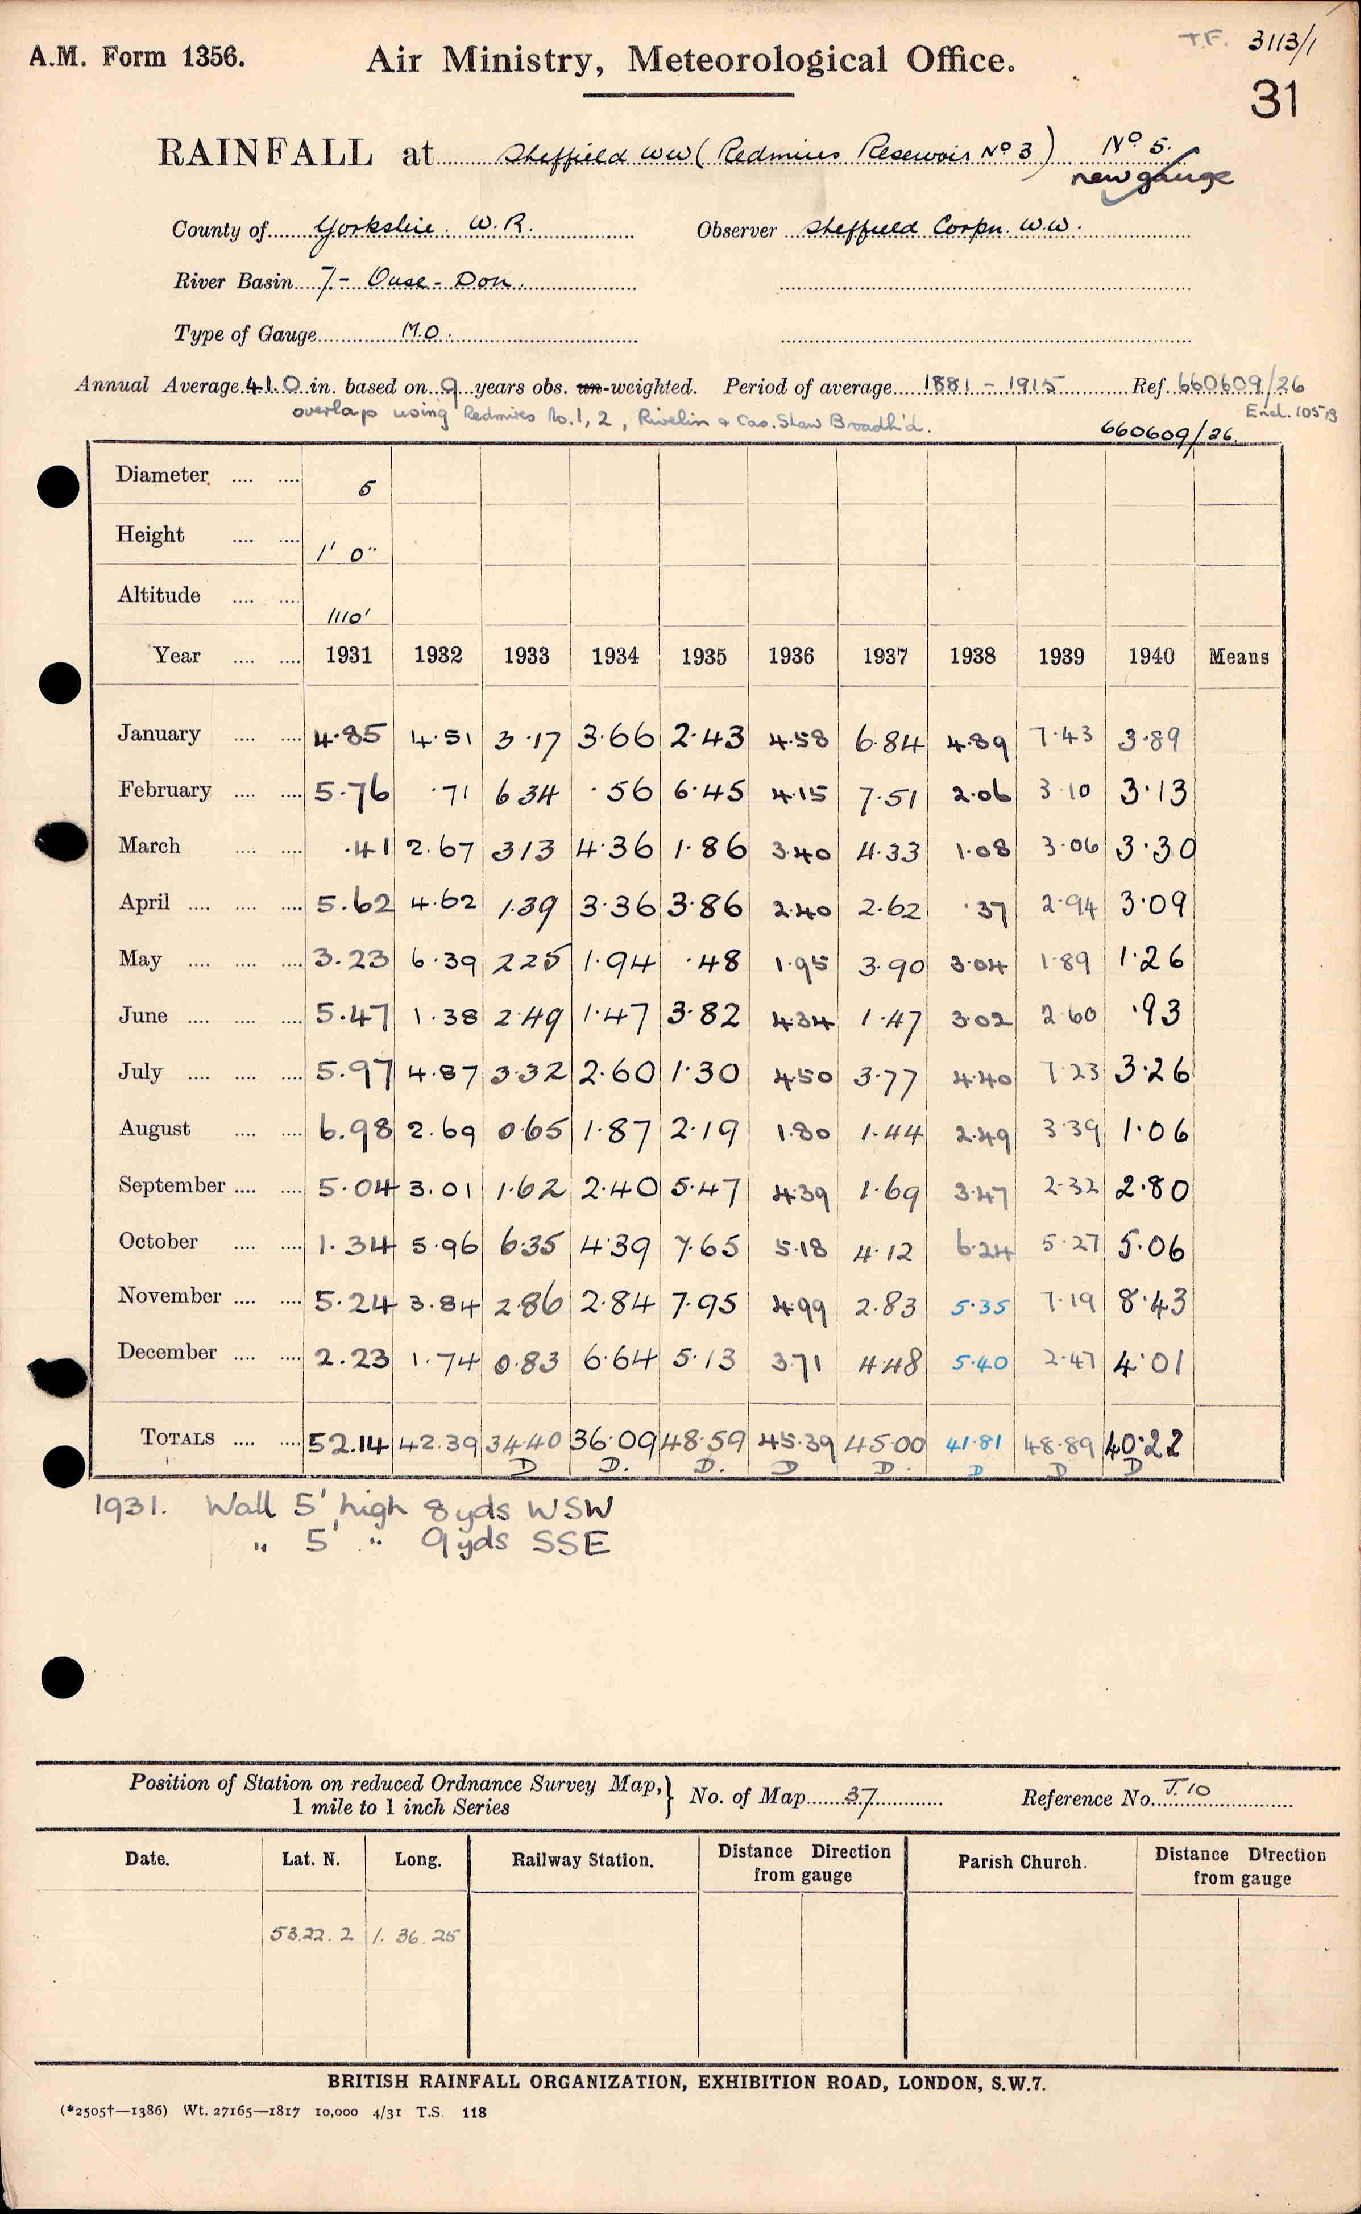 T.F. 3113/1
A.M. Form 1356. Air Ministry, Meteorological Office.
31
RAINFALL at Sheffield WW (Redmires Reservoir No 3) No 5.
new gauge
County of Yorkshire. W.R. Observer Sheffield Corpn. W.W.
River Basin 7- Ouse - Don.
Type of Gauge M.O.
Annual Average 41.0 in. based on 9 years obs. un-weighted. Period of average 1881 - 1915 Ref. 660609/26
overlap using Redmires No. 1, 2, Rivelin & Cas. Shaw Broadh'd. End. 105B
660609/26.
Diameter .... .... 5
Height .... .... 1' 0"
Altitude .... .... 1110'
Year .... .... 1931 1932 1933 1934 1935 1936 1937 1938 1939 1940 Means
January .... .... 4.85 4.51 3.17 3.66 2.43 4.58 6.84 4.89 7.43 3.89
February .... .... 5.76 .71 6 34 .56 6.45 4.15 7.51 2.06 3.10 3.13
March .... .... .41 2.67 3 13 4.36 1.86 3.40 4.33 1.08 3.06 3.30
April .... .... .... 5.62 4.62 1.39 3.36 3.86 2.40 2.62 .37 2.94 3.09
May .... .... .... 3.23 6.39 2 25 1.94 .48 1.95 3.90 3.04 1.89 1.26
June .... .... .... 5.47 1.38 2.49 1.47 3.82 4.34 1.47 3.02 2.60 .93
July .... .... .... 5.97 4.87 3.32 2.60 1.30 4.50 3.77 4.40 7.23 3.26
August .... .... 6.98 2.69 0.65 1.87 2.19 1.80 1.44 2.49 3.39 1.06
September .... .... 5.04 3.01 1.62 2.40 5.47 4.39 1.69 3.47 2.32 2.80
October .... .... 1.34 5.96 6.35 4.39 7.65 5.18 4.12 6.24 5.27 5.06
November .... .... 5.24 3.84 2.86 2.84 7.95 4.99 2.83 5.35 7.19 8.43
December .... .... 2.23 1.74 0.83 6.64 5.13 3.71 4.48 5.40 2.47 4.01
TOTALS .... .... 52.14 42.39 34.40 36.09 48.59 45.39 45.00 41.81 48.89 40.22
D D. D. D D. D D D
1931. Wall 5' high 8 yds WSW
" 5' " 9 yds SSE
Position of Station on reduced Ordnance Survey Map, } No. of Map 37 Reference No. J.10
1 mile to 1 inch Series
Date. Lat. N. Long. Railway Station. Distance Direction from gauge Parish Church. Distance Direction from gauge
53.22.2 1.36.25
BRITISH RAINFALL ORGANIZATION, EXHIBITION ROAD, LONDON, S.W.7.
(*2505†—1386) Wt. 27165—1817 10,000 4/31 T.S. 118